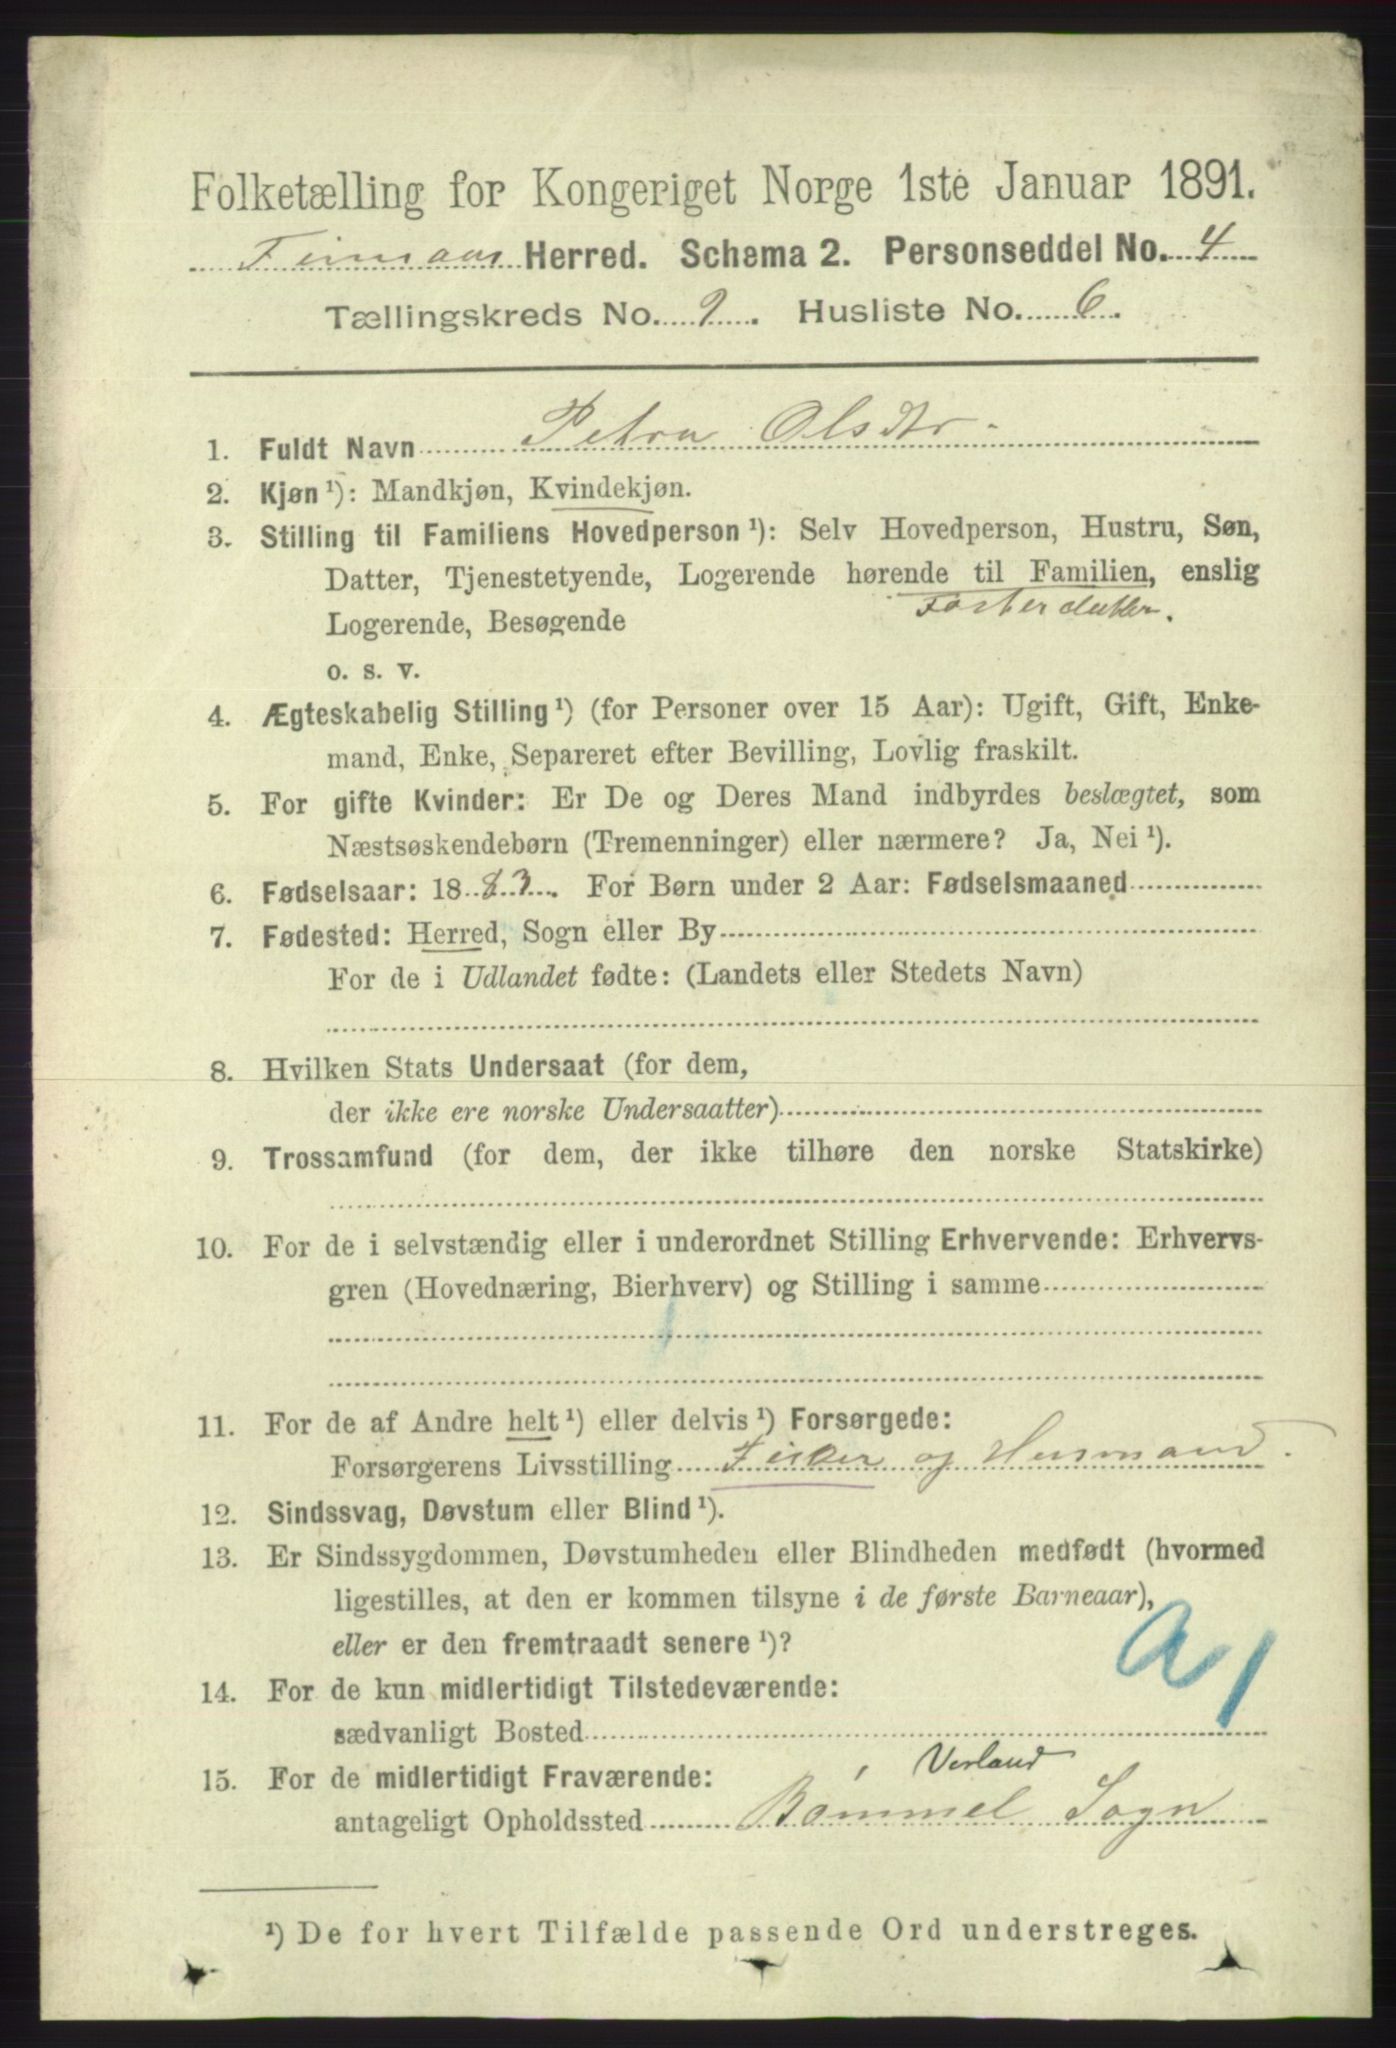 Folketælling for Kongeriget Norge 1ste Januar 1891.
Finnaas Herred. Schema 2. Personseddel No. 4
Tællingskreds No. 9. Husliste No. 6.
1. Fuldt Navn Petra Olsdtr
2. Kjøn ¹): Mandkjøn, Kvindekjøn.
3. Stilling til Familiens Hovedperson ¹): Selv Hovedperson, Hustru, Søn,
Datter, Tjenestetyende, Logerende hørende til Familien, enslig
Fosterdatter.
Logerende, Besøgende
o. s. v.
4. Ægteskabelig Stilling ¹) (for Personer over 15 Aar): Ugift, Gift, Enke-
mand, Enke, Separeret efter Bevilling, Lovlig fraskilt.
5. For gifte Kvinder: Er De og Deres Mand indbyrdes beslægtet, som
Næstsøskendebørn (Tremenninger) eller nærmere? Ja, Nei ¹).
6. Fødselsaar: 1883. For Børn under 2 Aar: Fødselsmaaned
7. Fødested: Herred, Sogn eller By
For de i Udlandet fødte: (Landets eller Stedets Navn)
8. Hvilken Stats Undersaat (for dem,
der ikke ere norske Undersaatter)
9. Trossamfund (for dem, der ikke tilhøre den norske Statskirke)
10. For de i selvstændig eller i underordnet Stilling Erhvervende: Erhvervs-
gren (Hovednæring, Bierhverv) og Stilling i samme
11. For de af Andre helt ¹) eller delvis ¹) Forsørgede:
Forsørgerens Livsstilling Fisker og Husmand.
12. Sindssvag, Døvstum eller Blind ¹).
13. Er Sindssygdommen, Døvstumheden eller Blindheden medfødt (hvormed
ligestilles, at den er kommen tilsyne i de første Barneaar),
eller er den fremtraadt senere ¹)?
a 1
14. For de kun midlertidigt Tilstedeværende:
sædvanligt Bosted
15. For de midlertidigt Fraværende:
antageligt Opholdssted Bømmel Sogn
¹) De for hvert Tilfælde passende Ord understreges.